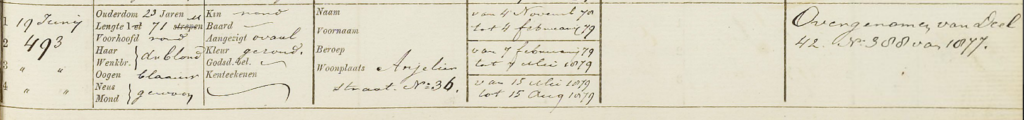 1
2
3
4
19 Junij
493
" "
" "
Ouderdom 23 Jaren
Lengte 1 el 71 strepen
Voorhoofd rond
Haar
Wenkbr. } d. blond
Oogen blaauw
Neus
Mond } gewoon
Kin rond
Baard —
Aangezigt ovaal
Kleur gezond.
Godsd. Isl. —
Kenteekenen
Naam
Voornaam
Beroep
Woonplaats Anjelier
straat. No 36.
van 4 Novemb 78
tot 4 februarij 79
van 7 februarij 79
tot 7 Mei 1879
van 15 Mei 1879
tot 15 Aug 1879
Overgenomen van Deel
42. No 388 van 1877.